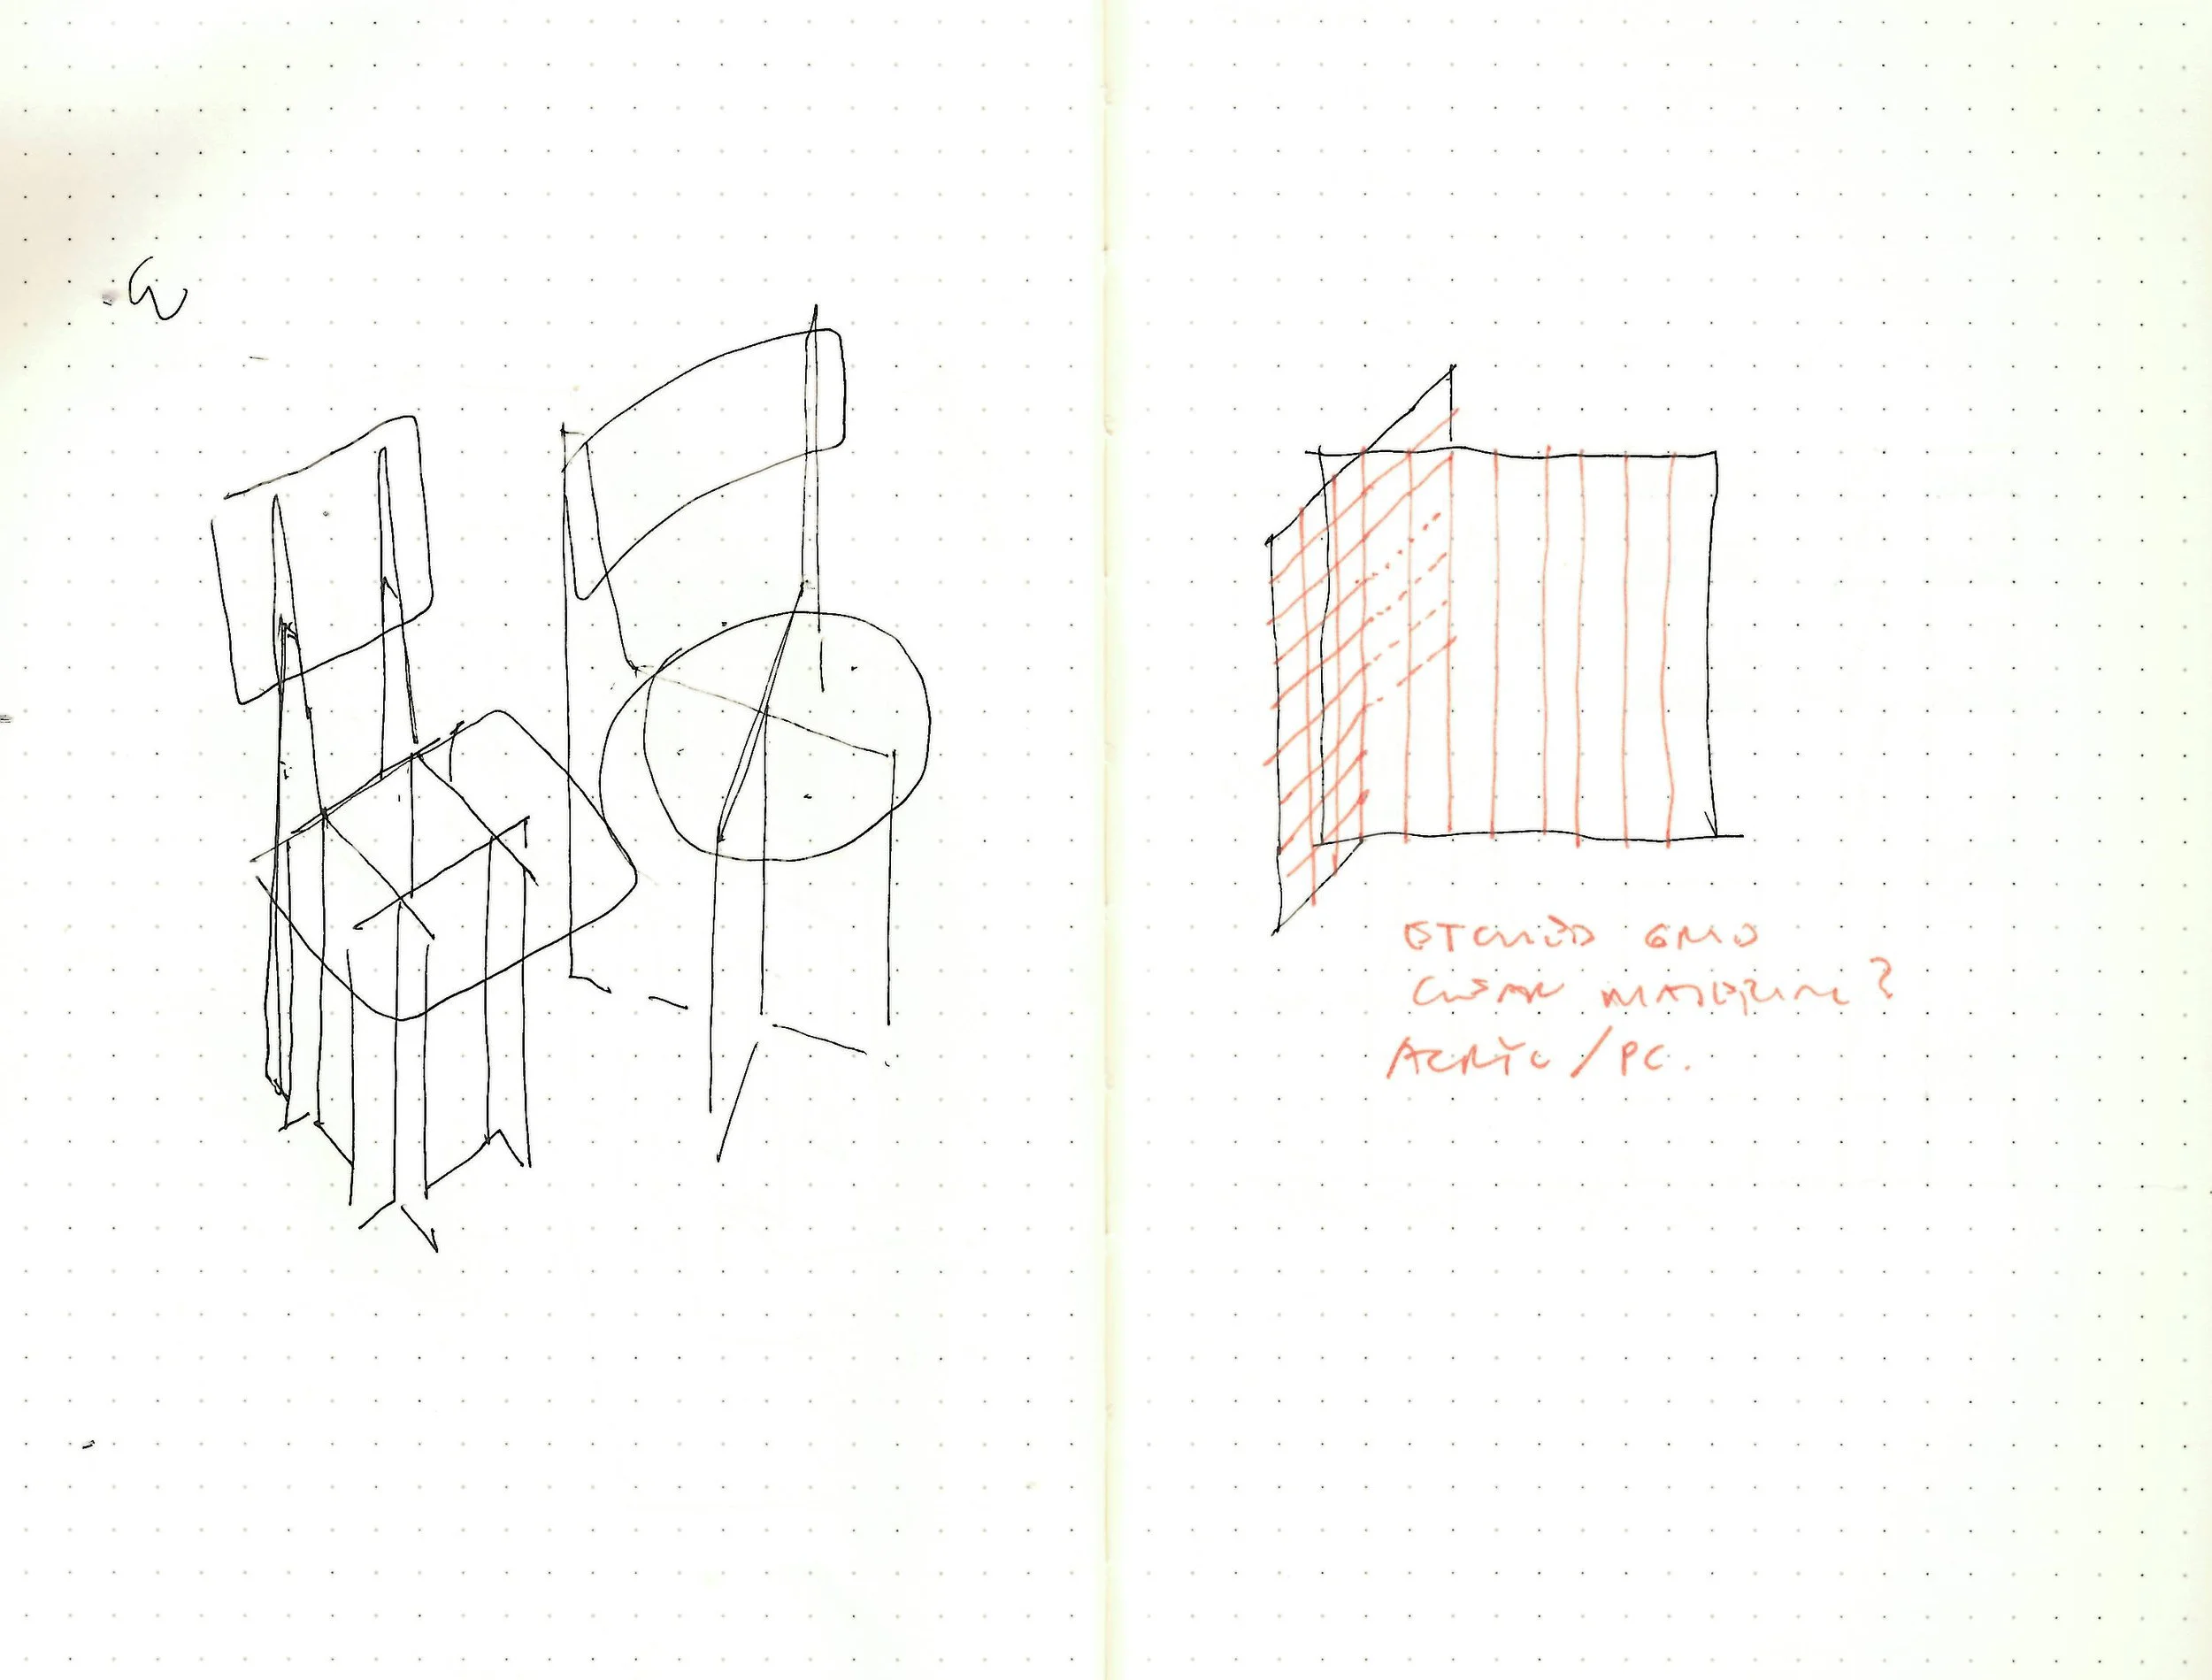 ETCHED GRID
CLEAR MATERIAL?
ACRYLIC / PC.